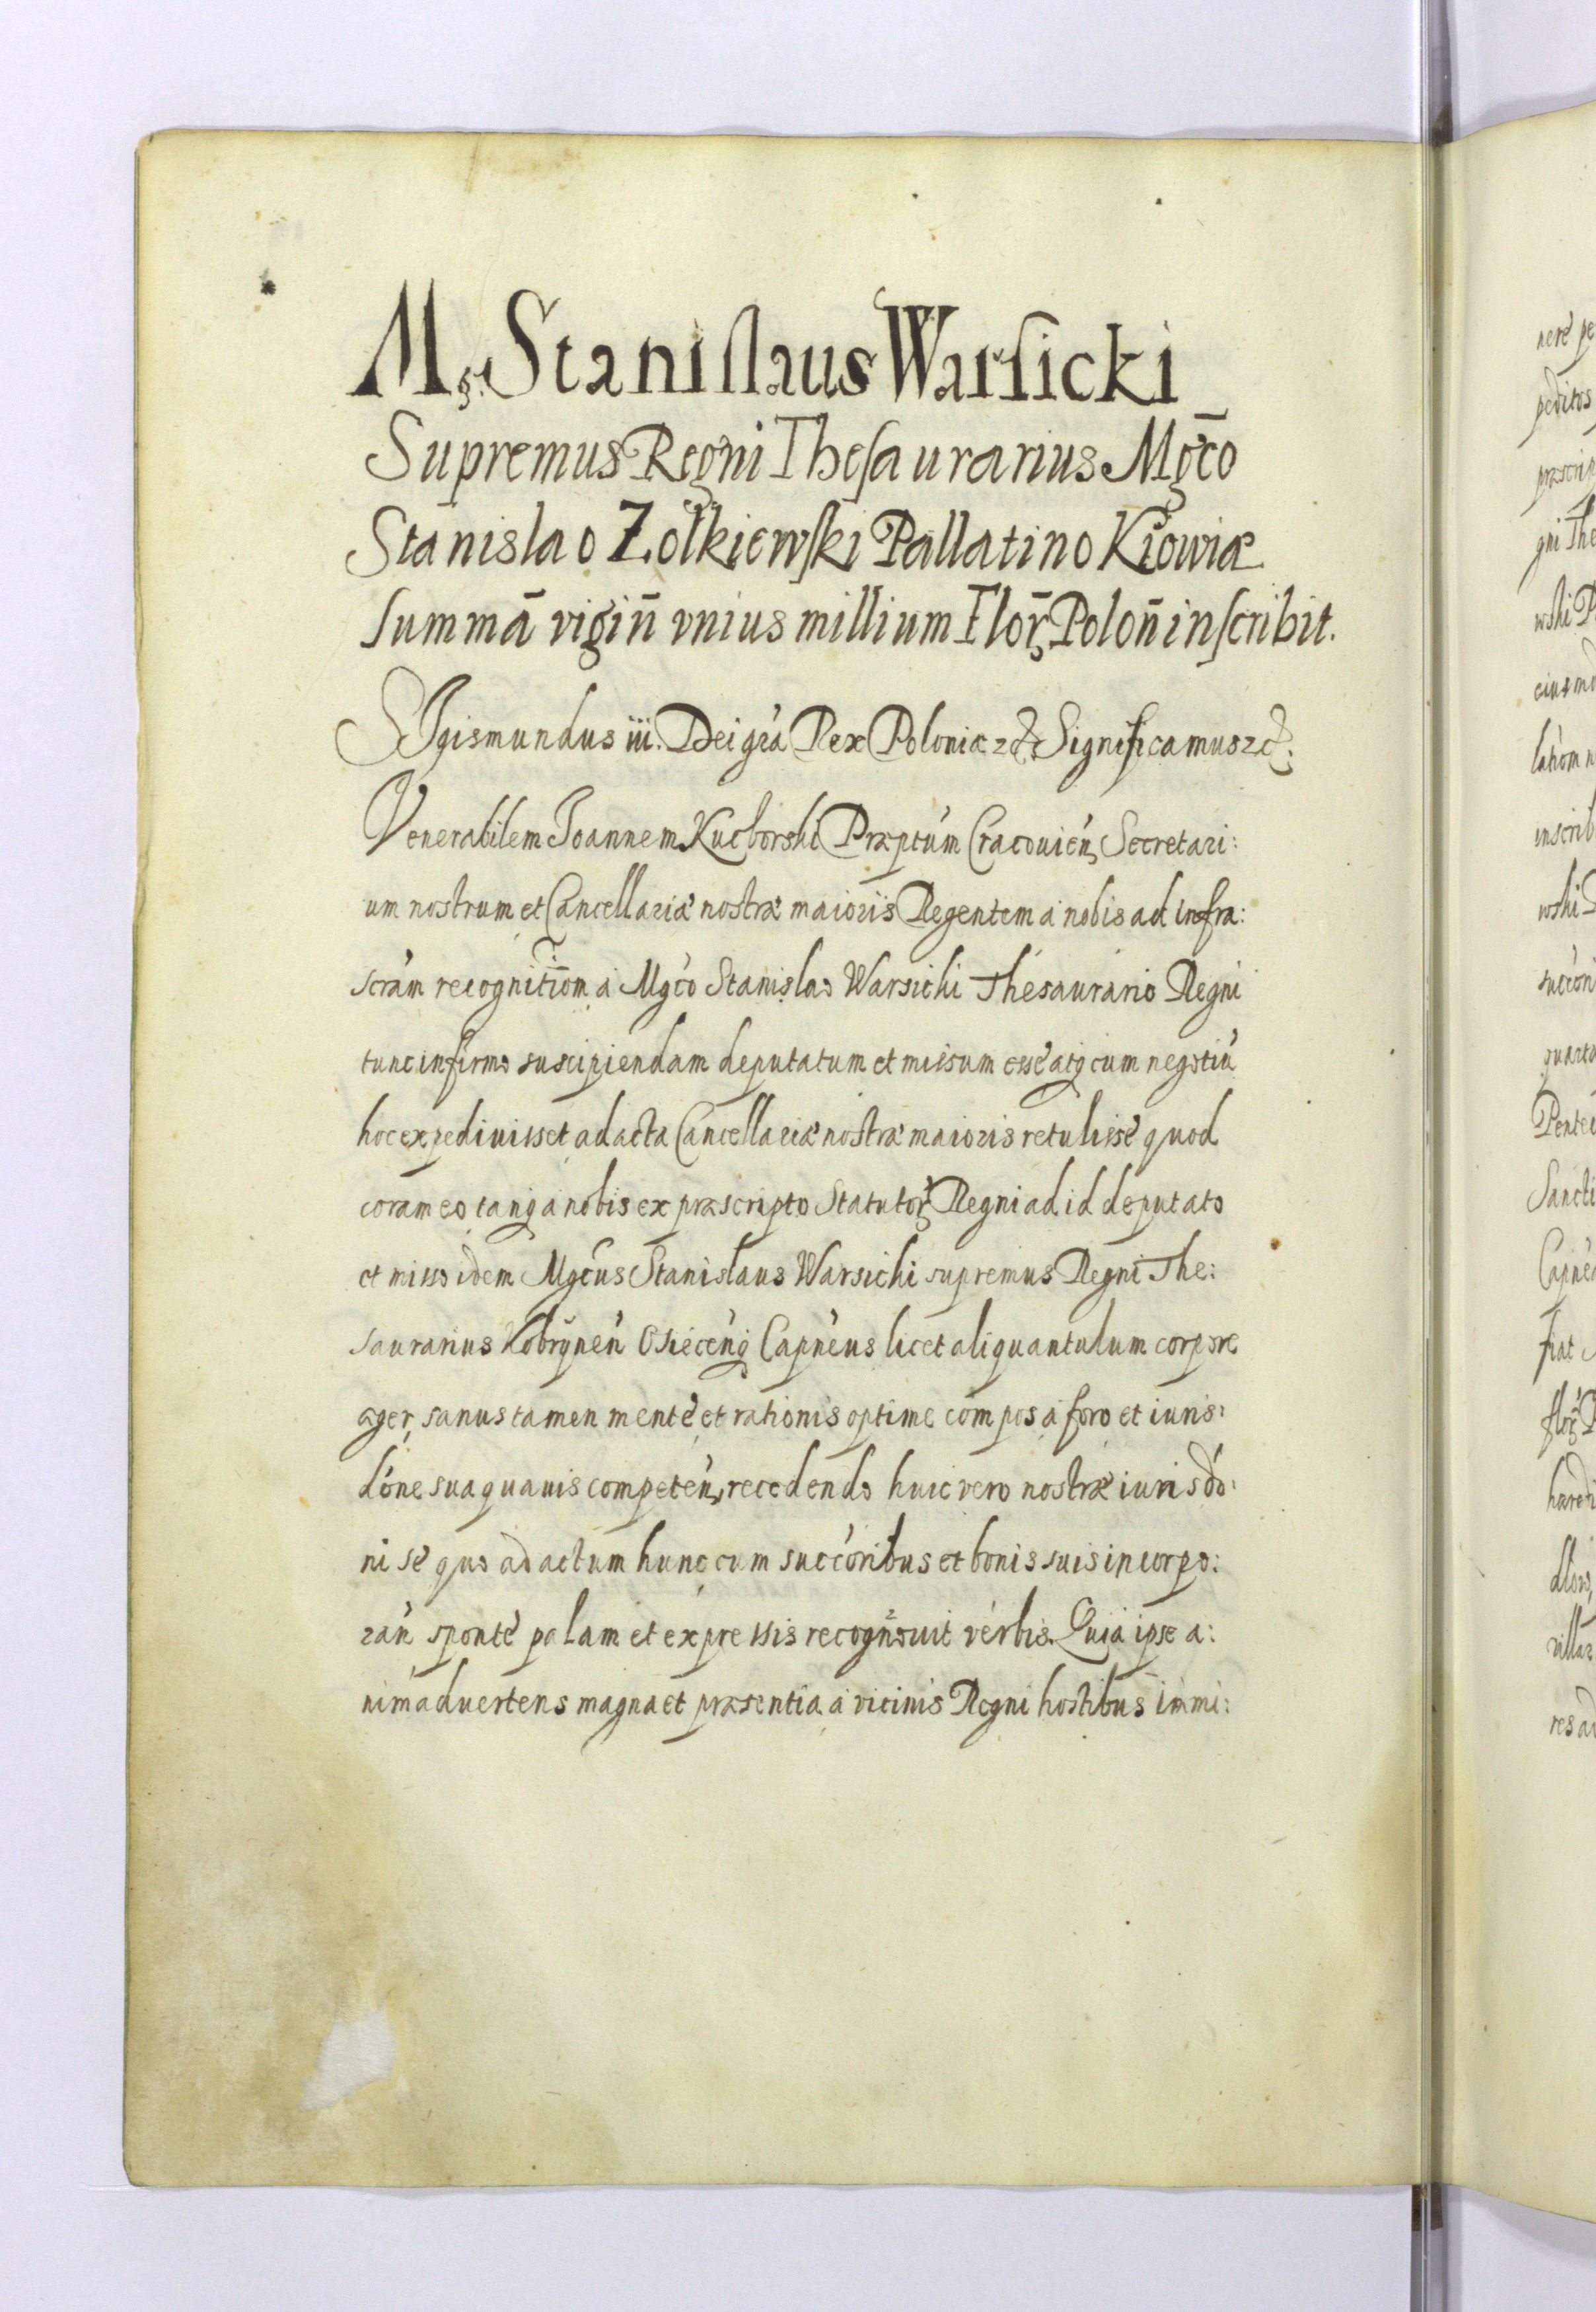 M. Stanislaus Warsicki
Supremus Regni Thesaurarius Mgco̅
Stanislao Zolkiewski Pallatino Kiowiæ
summā vigin̄ vnius millium Flor̄ Polon̄ inscribit.
SIgismundus iii. Dei grà Rex Poloniæ &c Significamus &c:
Venerabilem Joannem Kucborski Præptùm Cracouień, Secretari:
um nostrum et Cancellariæ nostræ maioris Regentem à nobis ad infra:
scràm recognitiom̄ à Mgcò Stanislao Warsicki Thesaurario Regni
tunc infirmo suscipiendam deputatum et missum esse atq cum negotiū
hoc expediuisset ad acta Cancellariæ nostræ maioris retulisse quod
coram eo tanq à nobis ex præscripto Statutor Regni ad id deputato
et misso idem Mgcùs Stanislaus Warsicki supremus Regni The:
saurarius Kobrÿneń Osieceńq Capnèus licet aliquantulum corpore
æger, sanus tamen mente et rationis optime compos à foro et iuris:
dòne sua quauis competeń, recedendo huic vero nostræ iurisdò:
ni se quo ad actum hunc cum succòribus et bonis suis incorpo:
rań sponte palam et expressis recognouit verbis. Quia ipse a:
nimaduertens magna et præsentia à vicinis Regni hostibus immi:
nere pe
peditos
præscrip
gni The
wski P
eiusmo
latiom n
inscrib
wski P
succòri
quarta
Pentec
Sancti
Capnèa
fiat
flor P
hæredi
villar
res ad